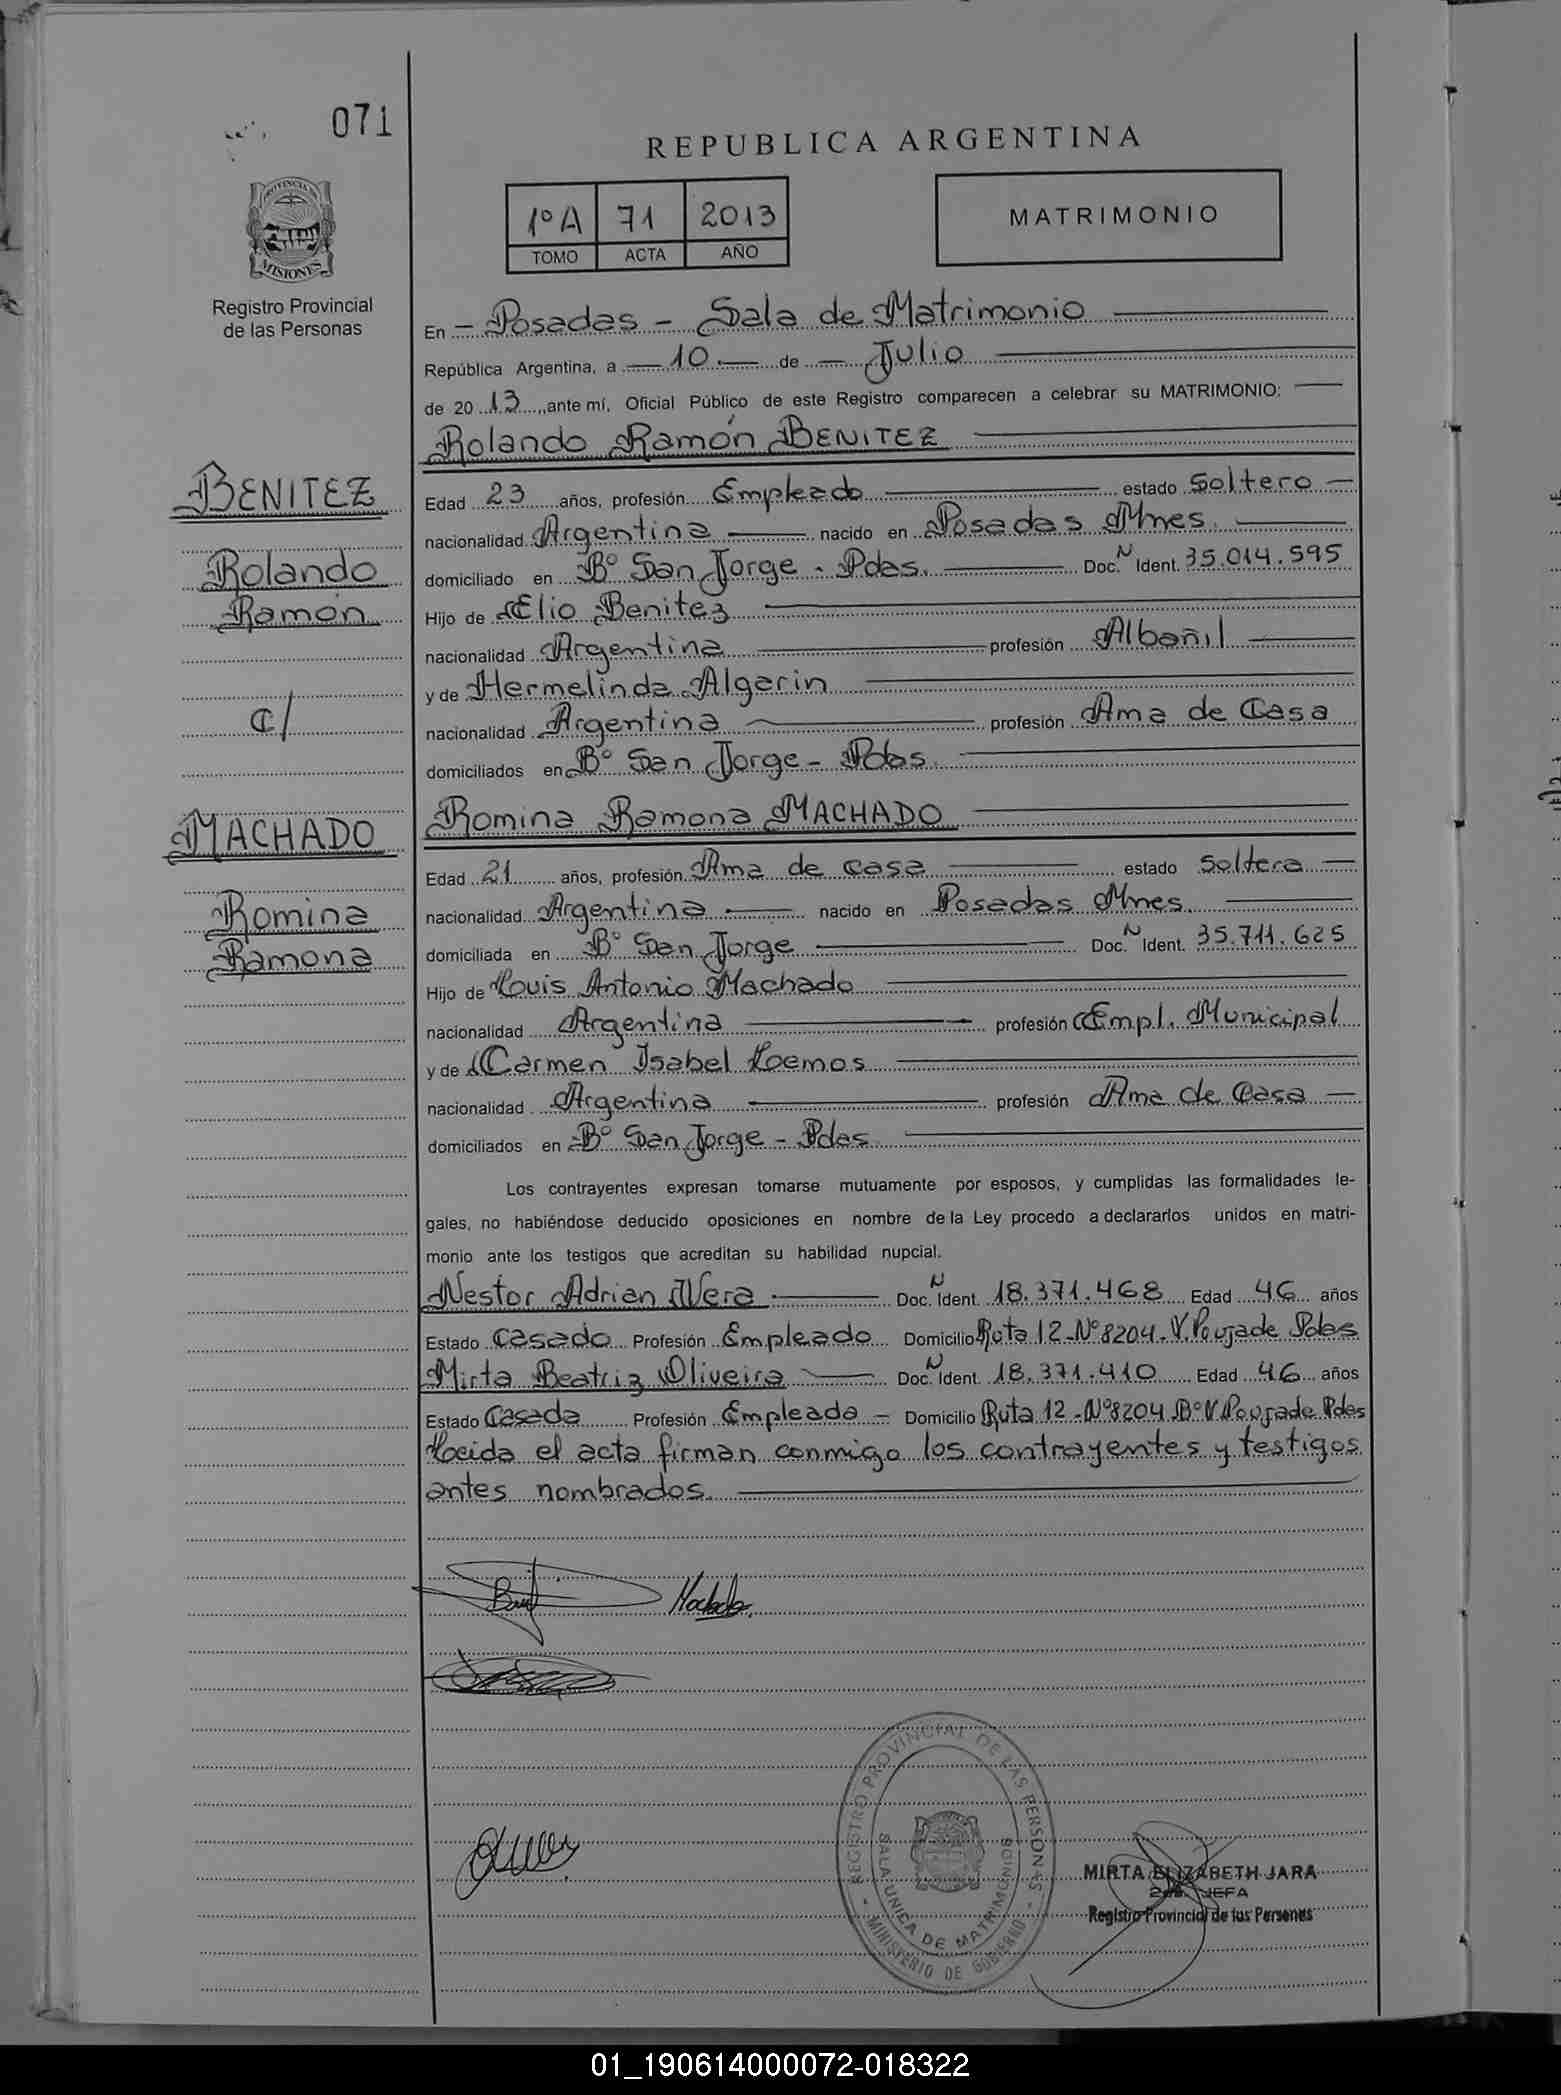 071
REPUBLICA ARGENTINA
1º A 71 2013
TOMO ACTA AÑO
MATRIMONIO
PROVINCIA DE
MISIONES
Registro Provincial
de las Personas
En - Posadas - Sala de Matrimonio
República Argentina, a - 10 - de - Julio
de 20 13 ,ante mí, Oficial Público de este Registro comparecen a celebrar su MATRIMONIO:
Rolando Ramón BENITEZ
BENITEZ
Rolando
Ramón
C/
MACHADO
Romina
Ramona
Edad 23 años, profesión Empleado estado Soltero -
nacionalidad Argentina nacido en Posadas Mnes.
domiciliado en Bº San Jorge - Pdas. Doc. N Ident. 35.014.595
Hijo de Elio Benitez
nacionalidad Argentina profesión Albañil
y de Hermelinda Algarin
nacionalidad Argentina profesión Ama de Casa
domiciliados en Bº San Jorge - Pdas.
Romina Ramona MACHADO
Edad 21 años, profesión Ama de casa estado Soltera -
nacionalidad Argentina nacido en Posadas Mnes.
domiciliada en Bº San Jorge Doc. N Ident. 35.711.625
Hijo de Luis Antonio Machado
nacionalidad Argentina profesión Empl. Municipal
y de Carmen Isabel Lemos
nacionalidad Argentina profesión Ama de Casa -
domiciliados en Bº San Jorge - Pdas
Los contrayentes expresan tomarse mutuamente por esposos, y cumplidas las formalidades le-
gales, no habiéndose deducido oposiciones en nombre de la Ley procedo a declararlos unidos en matri-
monio ante los testigos que acreditan su habilidad nupcial.
Nestor Adrian Vera Doc. N Ident. 18.371.468 Edad 46 años
Estado Casado Profesión Empleado Domicilio Ruta 12 - Nº 8204 - V. Poujade Pdas
Mirta Beatriz Oliveira Doc. N Ident. 18.371.410 Edad 46 años
Estado Casada Profesión Empleada - Domicilio Ruta 12 - Nº 8204 Bº V. Poujade Pdas
Leida el acta firman conmigo los contrayentes y testigos
antes nombrados.
Machado
REGISTRO PROVINCIAL DE LAS PERSONAS
SALA UNICA DE MATRIMONIOS
- MINISTERIO DE GOBIERNO -
MIRTA ELIZABETH JARA
2da. JEFA
Registro Provincial de las Personas
01_190614000072-018322